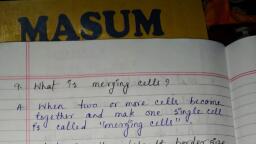 MASUM
9. What is merging cells?
A. When two or more cells become
together and mak one single cell
is called "merging cells".
border size